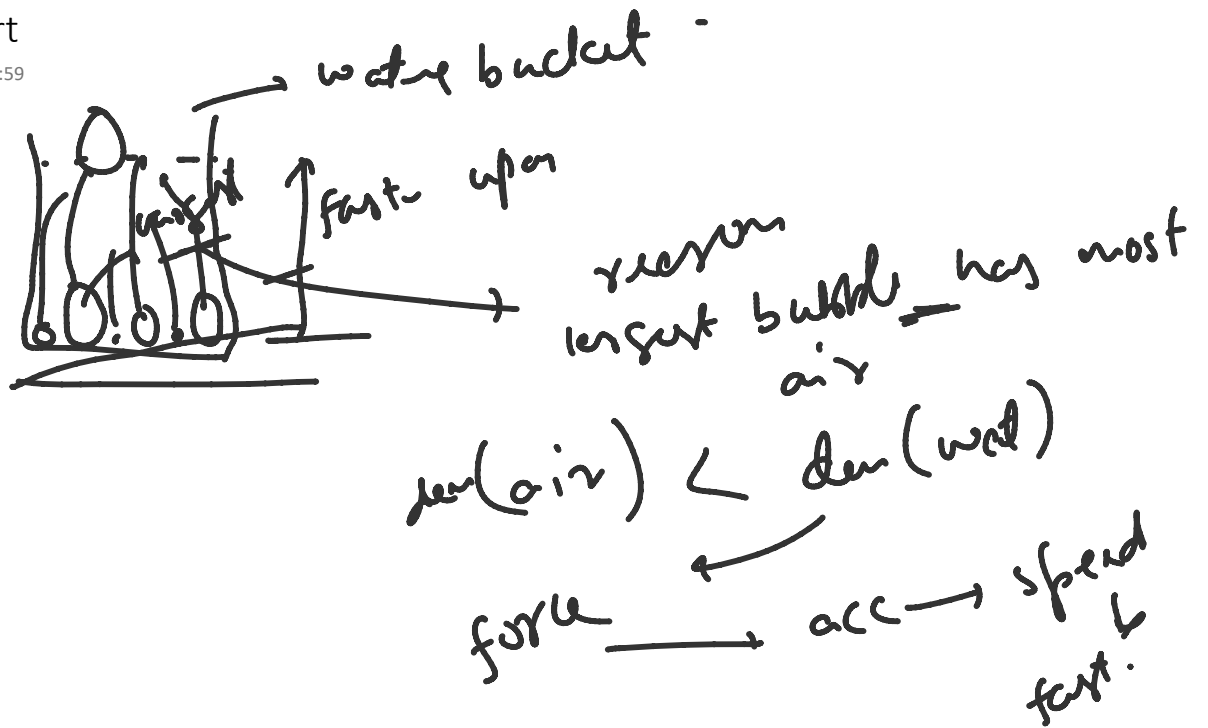 rt
:59
water bucket
fast upon
reason
largest bubble has most
air
den(air) < den(wat)
force → acc → speed
fast.